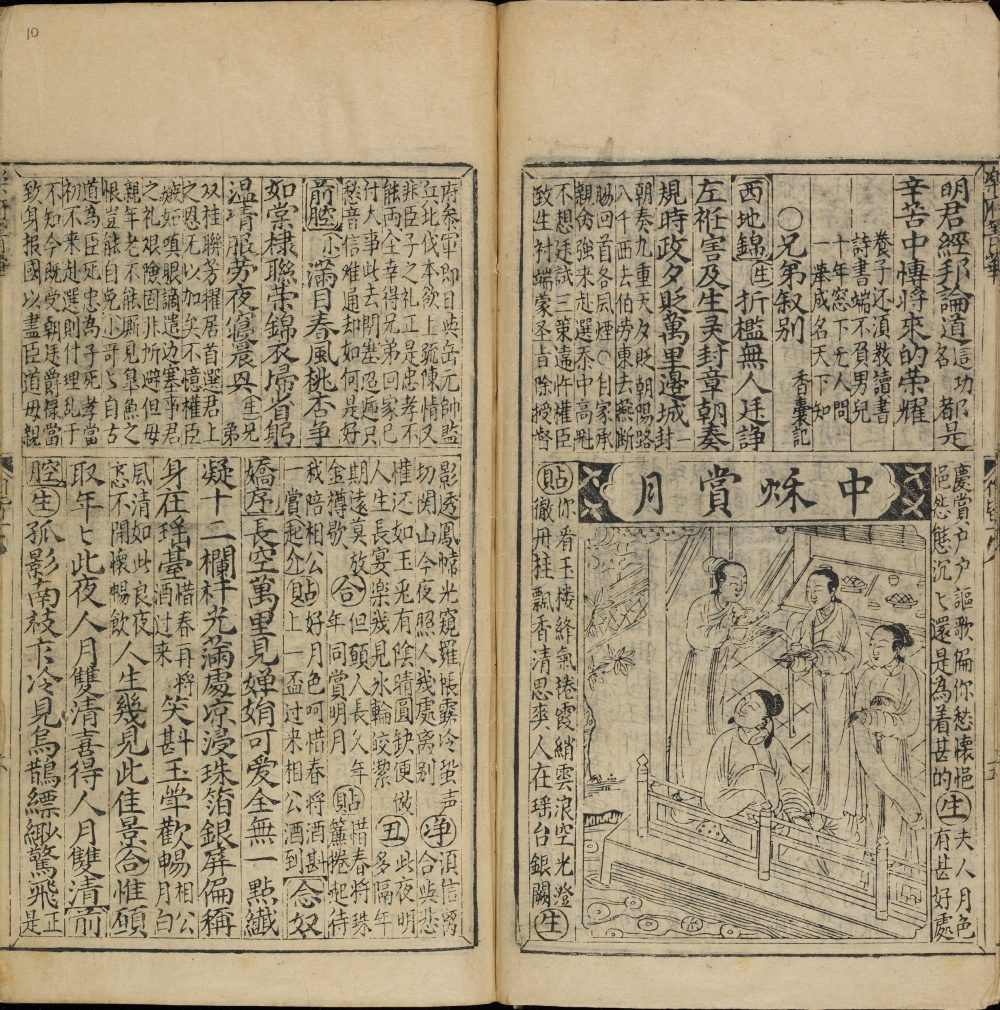 明君經邦論道這功名都是
辛苦中博將來的榮耀
養子还湏教讀書
詩書端不負男兒
十年窓下无人問
一举成名天下知
○兄弟叙別 香囊記
西地錦 生 折檻無人廷諍
左袵害及生灵封章朝奏
規時政夕貶萬里邊城 一封
朝奏九重天夕貶朝陽路
八千西去伯劳東去燕断
賜回首各風煙○自家承
親命強来赴選忝中高魁
不想廷試三策遠忤權臣
致生衬端蒙圣旨除授督
中秌賞月
慶賞户户謳歌偏你愁懷悒
悒愁態沉ヒ還是為着甚的 生 夫人月色
府甚好處
貼 你看玉楼絳氣捲霞綃雲浪空光澄
徹丹桂飄香清思爽人在瑶台銀闕 生
府參軍即日與岳元帥監
兵北伐本欲上疏陳情又
非臣子之礼正是忠孝不
能両全幸得兄弟回家已
付大事此去関塞迢遞只
愁音信难通却如何是好
前腔 小 滿目春風桃杏争
如棠棣聮荣錦衣帰省躬
温凊服劳夜寢晨兴 生 兄弟
双桂聮芳擢居首選君上
之恩无以加矣不憶權臣
嫉妬嗔眼謫遣边塞事君
之礼艰險固非所避但母
親年老不能厮見皐魚之
恨豈能自免 小 哥ヒ自古
道為臣死忠為子死孝當
初不来赴選則什理乱于
不知今既受朝廷爵禄當
致身报國以盡臣道毋親
影透鳳幃光窺羅帳露冷蛩声
切関山今夜照人幾處离别 净 湏信离合與悲
惟还如玉兎有陰晴圓缺便做
人生長宴楽幾見氷輪皎潔 丑 此夜明多隔年
期遠莫放金樽歇 合 但願人長久年年同賞明月 貼 惜春将珠簾捲起待
我陪相公賞起介 貼 好月色呵惜春将酒斟上一盃过来相公酒到 念奴
嬌序 長空萬里見嬋娟可爱全無一點纖
凝十二欄杆光滿處凉浸珠箔銀屏偏稱
身在瑶臺 惜春再将酒过来 笑斟玉斝歡暢 相公月白
風清如此良夜怎不開懷暢飲 人生幾見此佳景 合 惟願
取年ヒ此夜人月雙清喜得人月雙清 前
腔 生 孤影南枝乍冷見烏鵲縹緲驚飛 正是